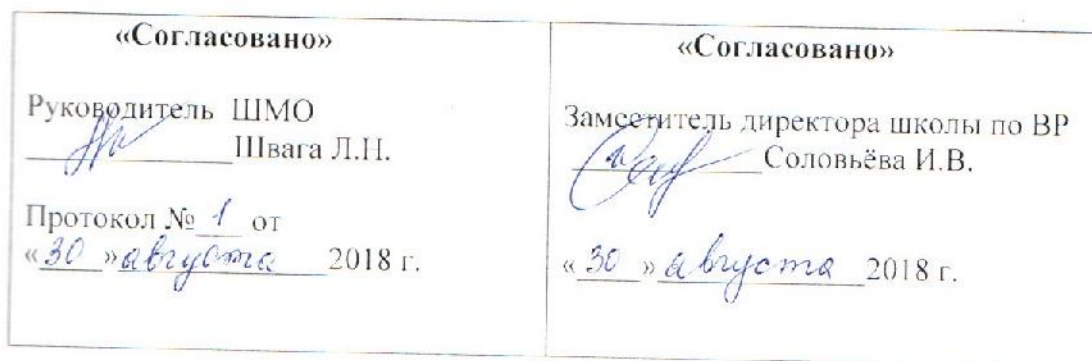 «Согласовано»
Руководитель ШМО
Швага Л.Н.
Протокол № 1 от
«30» августа 2018 г.
«Согласовано»
Заместитель директора школы по ВР
Соловьёва И.В.
«30» августа 2018 г.